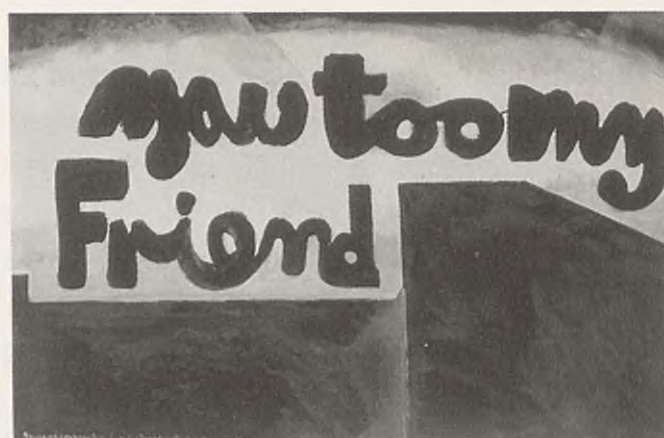 you too my
Friend